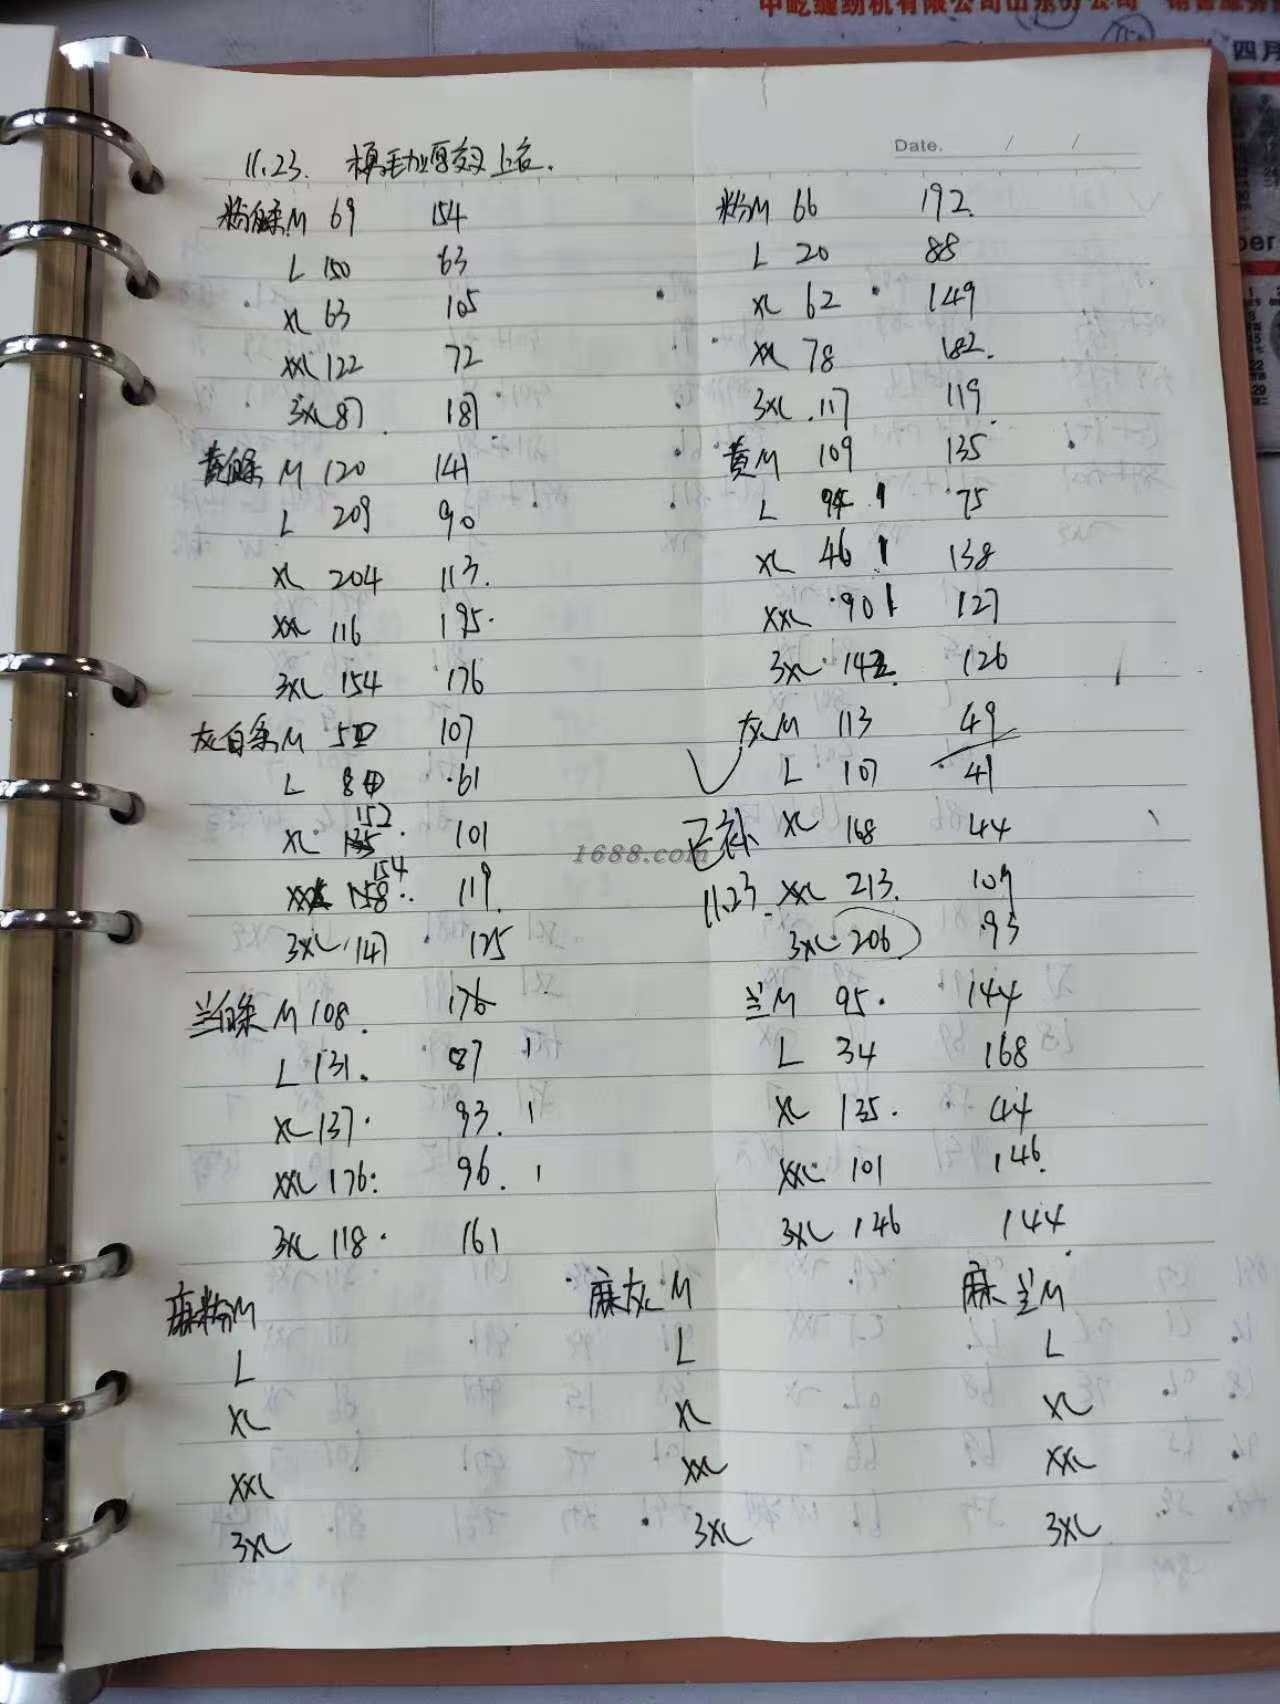 中屹缝纫机有限公司山东分公司 销售服务
四月
Date. / /
11.23. 横毛加厚交叉上衣.
粉白条M 69 154
L 150 63
XL 63 105
XXL 122 72
3XL 87 187
黄白条 M 120 141
L 209 90
XL 204 113.
XXL 116 195.
3XL 154 176
灰白条M 107
L 61
XL 152 101
XXL 154 158 119
3XL 147 125
兰白条 M 108. 176
L 131. 87 1
XL 137. 93. 1
XXL 176. 96. 1
3XL 118. 161
粉M 66 192.
L 20 88
XL 62 149
XXL 78 182.
3XL 117 119
黄M 109 135
L 94 1 75
XL 46 1 138
XXL 90 1 127
3XL 142 126
灰M 113 49
L 107 41
已补 XL 168 44
11.23. XXL 213. 109
3XL 206 93
兰M 95. 144
L 34 168
XL 135. 44
XXL 101 146.
3XL 146 144
1688.com
麻粉M
L
XL
XXL
3XL
麻灰M
L
XL
XXL
3XL
麻兰M
L
XL
XXL
3XL